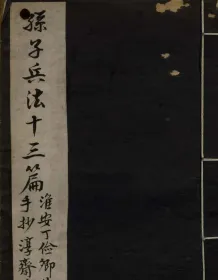 孫子兵法十三篇
淮安丁儉卿
手抄淳齋